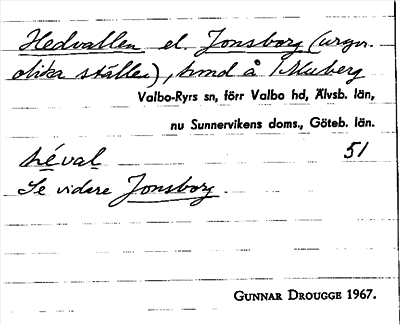 Hedvallen el. Jonsborg (urspr.
olika ställen), hmd å 1 Muberg
Valbo-Ryrs sn, förr Valbo hd, Älvsb. län,
nu Sunnervikens doms., Göteb. län.
hé̱val 51
Se vidare Jonsborg.
GUNNAR DROUGGE 1967.